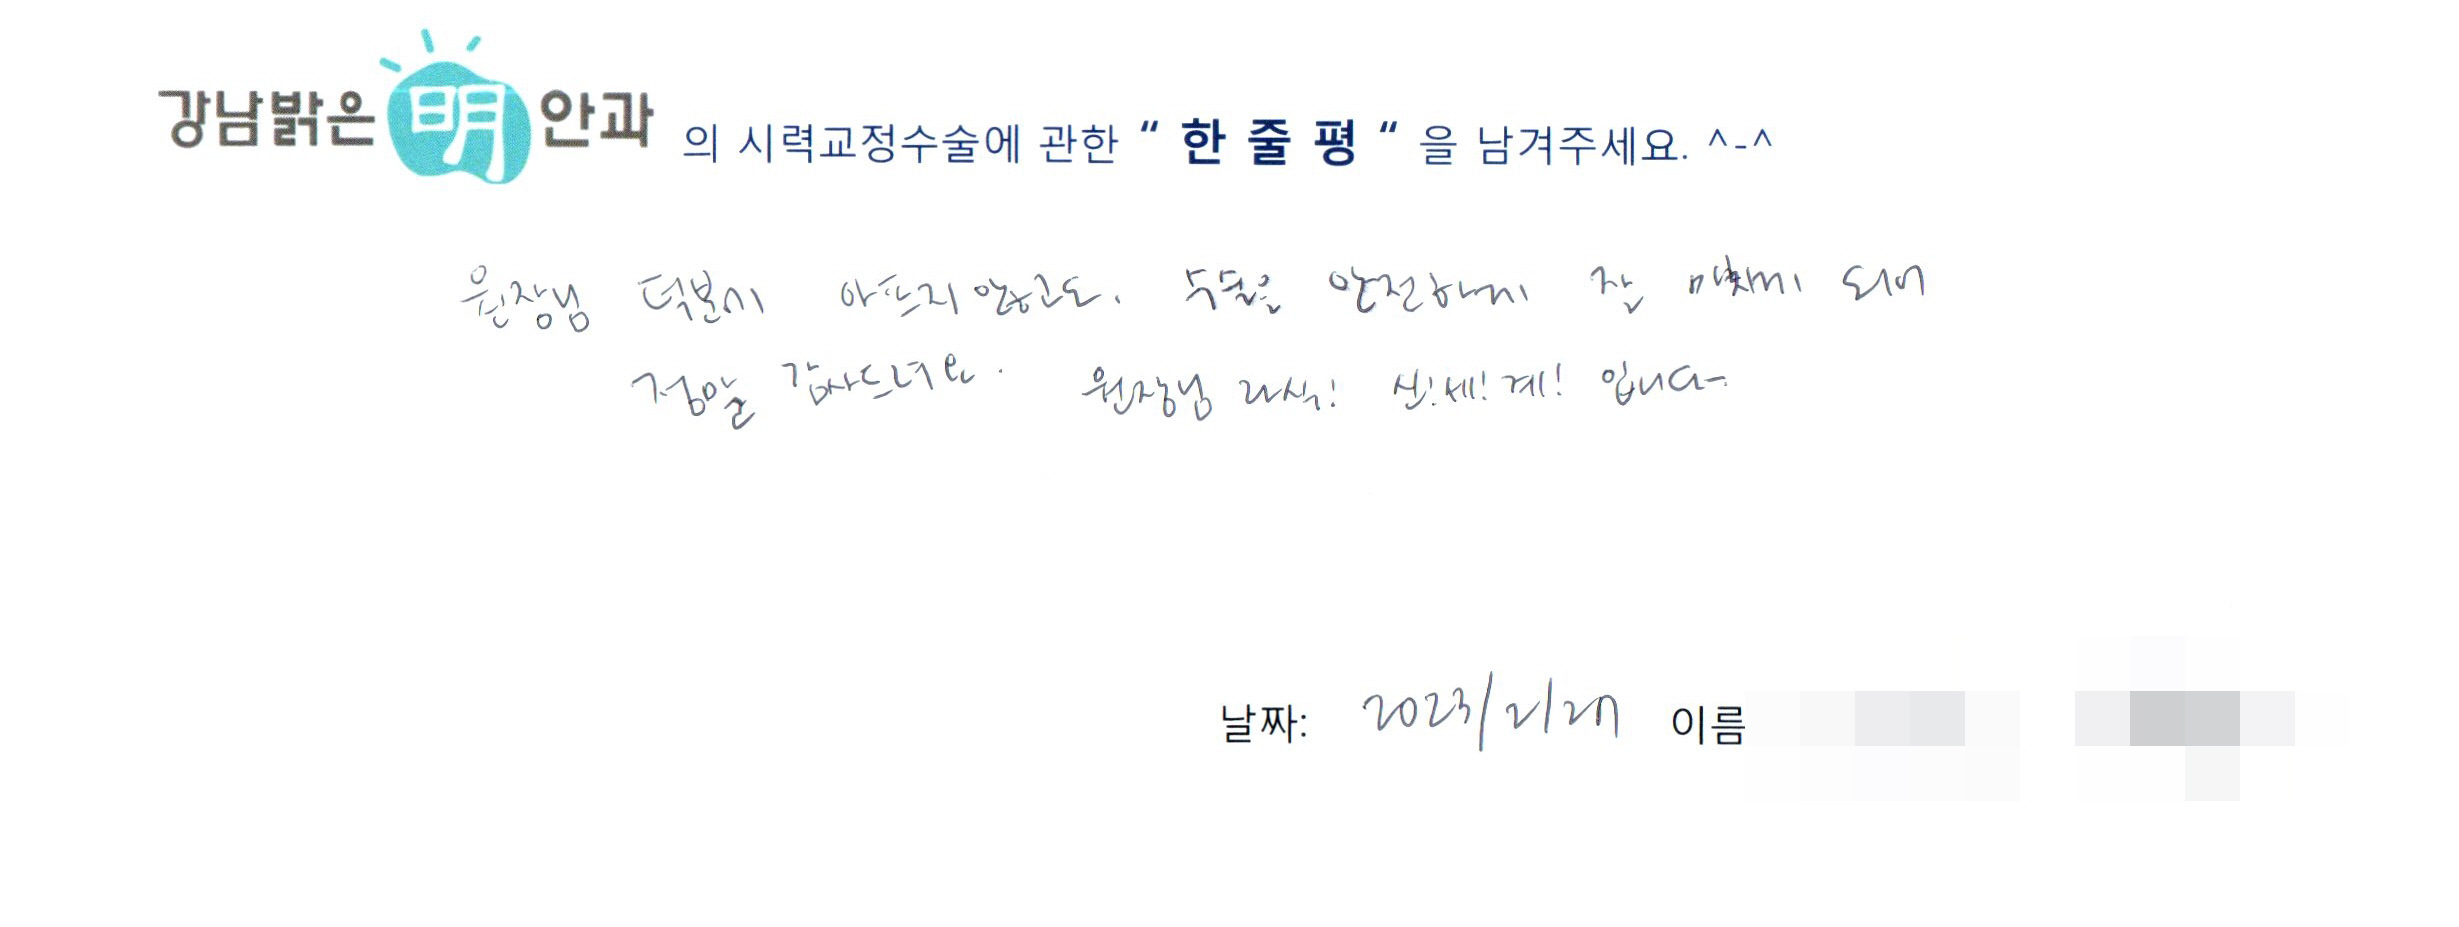 강남밝은 明 안과 의 시력교정수술에 관한 “ 한 줄 평 “ 을 남겨주세요. ^-^
원장님 덕분에 아프지않고도. 수술을 안전하게 잘 마치게 되어
정말 감사드려요. 원장님 라식! 신!세!계! 입니다-
날짜: 2023/2/27 이름